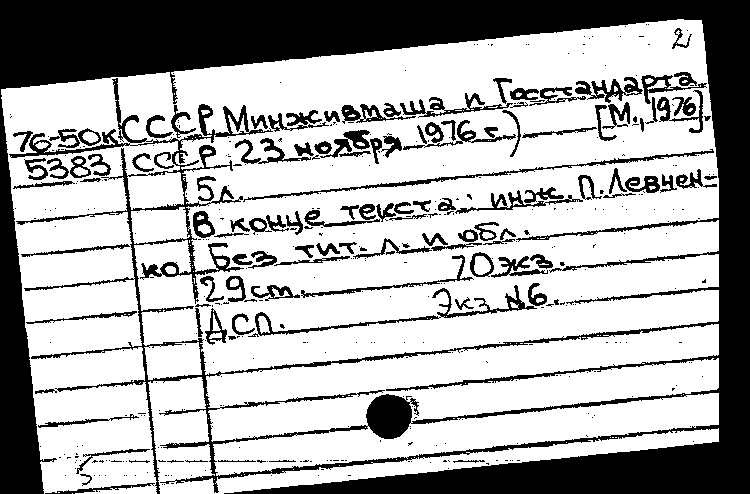 2
76-50к СССР, Минживмаша и Госстандарта
5383 СССР, 23 ноября 1976 г.) [М., 1976].
5л.
В конце текста: инж. П. Левчен-
ко Без тит. л. и обл.
29 см. 70 экз.
ДСП. Экз №6.
5